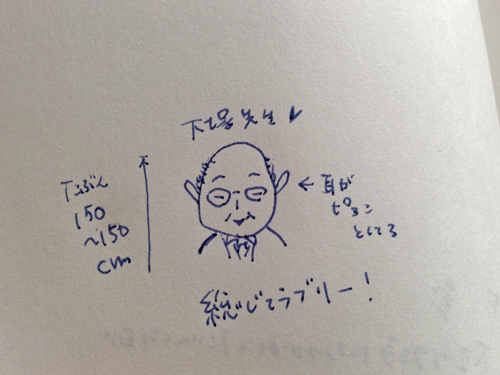 下塚先生
たぶん
150
~150
cm
←耳が
ぴょこ
としてる
総じてラブリー!